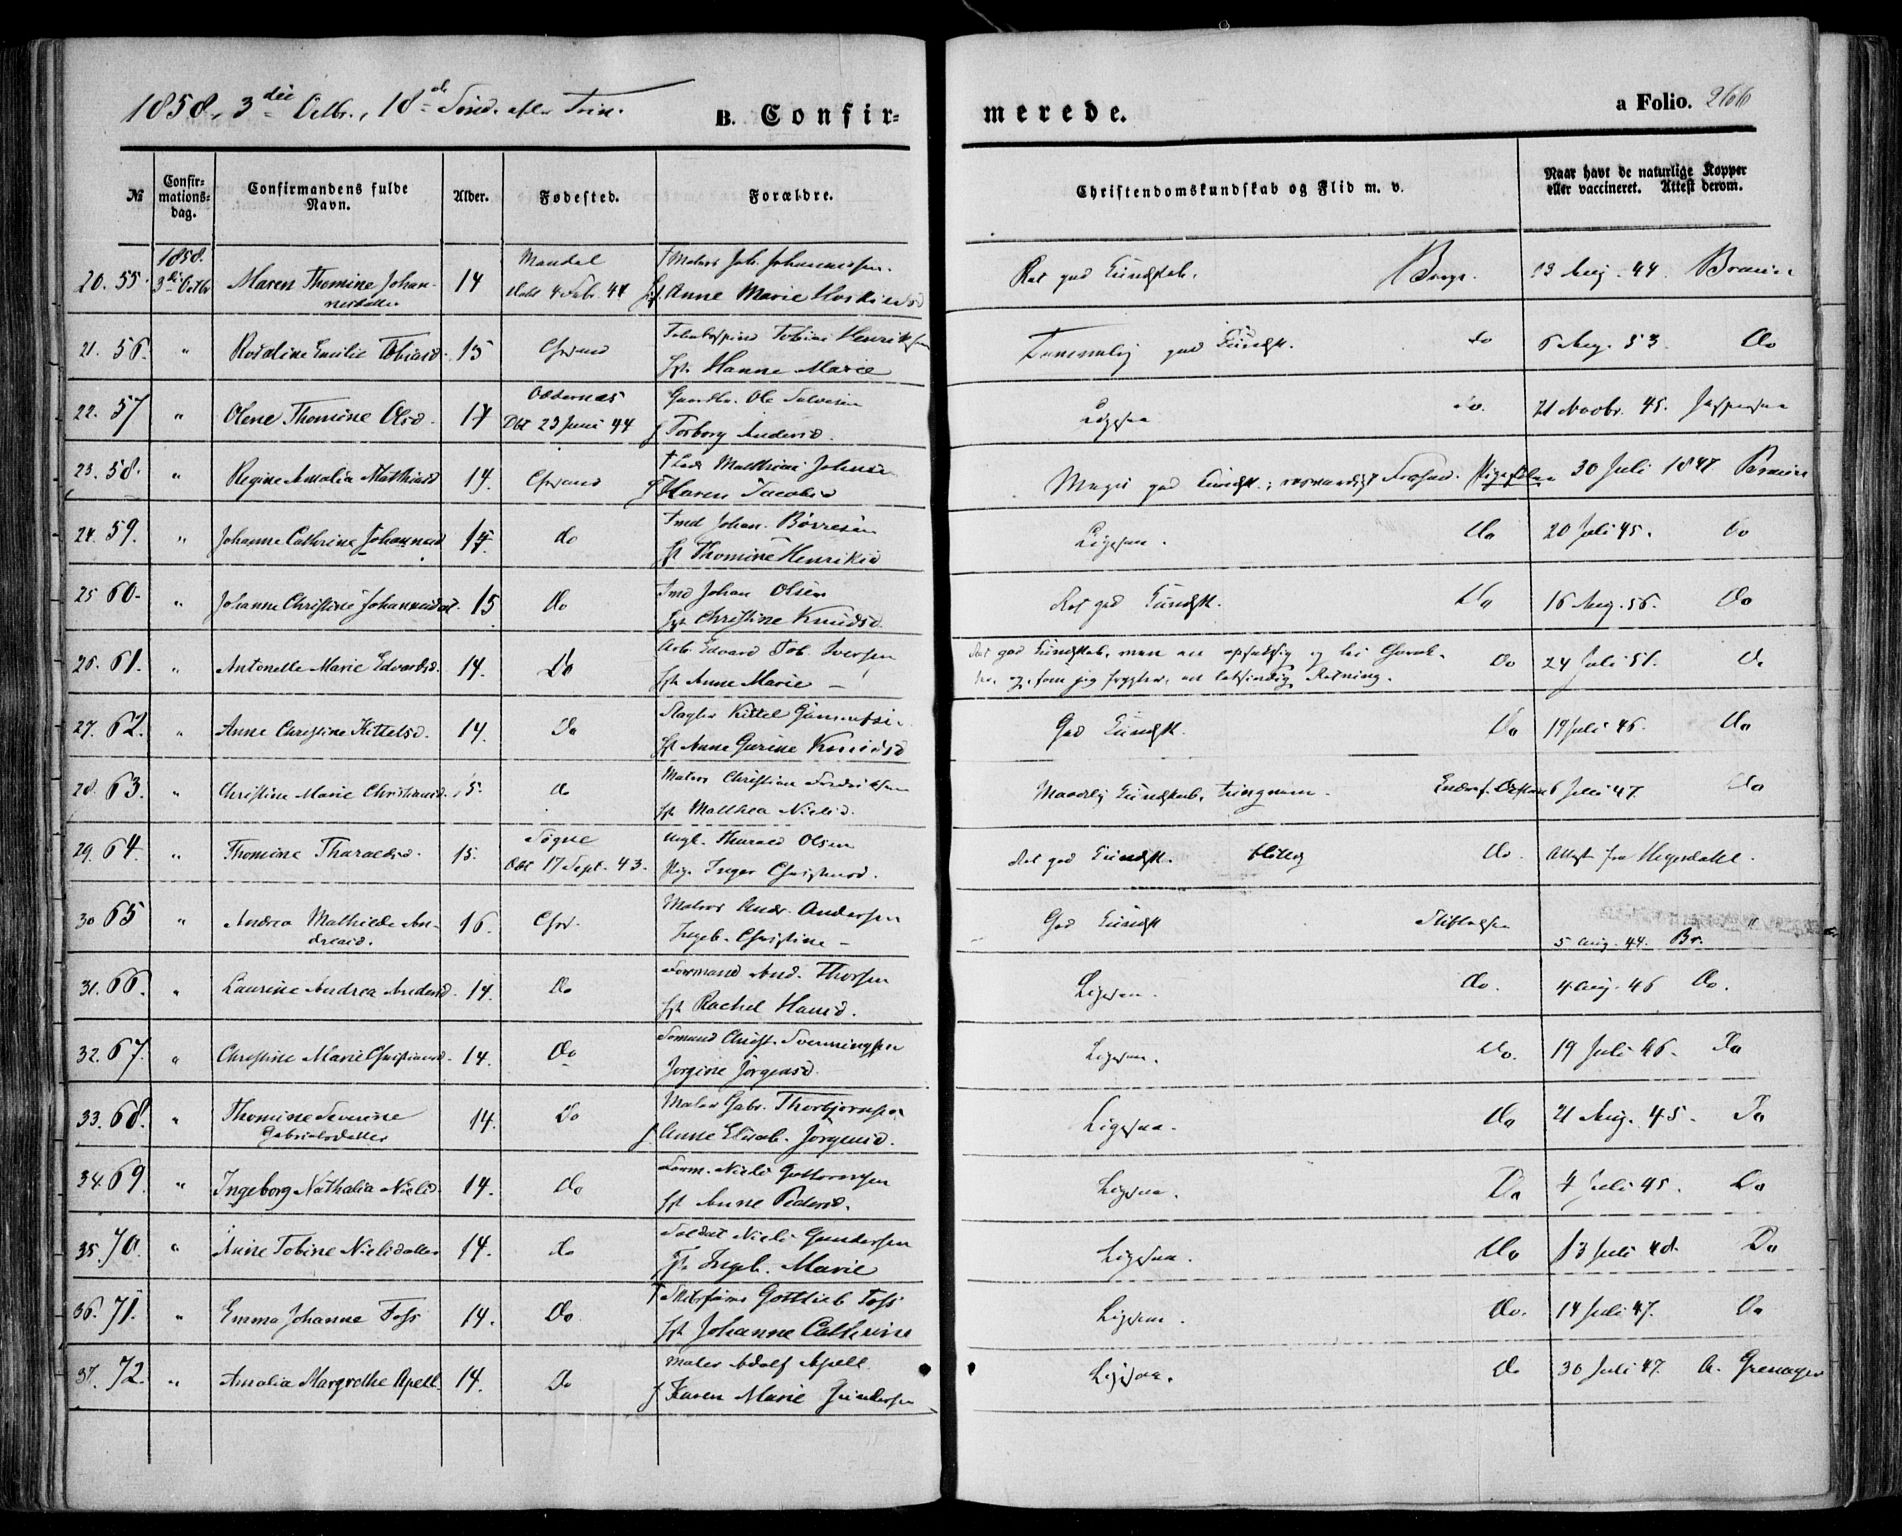 1858, 3die Octbr., 18de Sønd. efter Trin.
B. Confirmerede.
a Folio. 266
№
Confirmationsdag.
Confirmandens fulde Navn.
Alder.
Fødested.
Forældre.
Christendomskundskab og Flid m. v.
Naar havt de naturlige Kopper eller vaccineret. Attest derom.
20. 55. 1858. 3die Octbr Maren Thomine Johannesdatter 14 Mandal 4 Febr. 44 † Johannessen. Anne Marie 13 Aug. 44
21. 56. " Rosaline Emilie Tobiasd. 15 Chrsand Tobias Henriksen Hanne Marie Temmelig god Kundsk. do 6 Aug. 53 Do
22. 57 " Olene Thomine Olsd. 14 Oddernes Dbt 23 Juni 44 Gaardbr. Ole Salvesen Torborg Andersd. Ligesaa do. 21 Novbr. 45. Jespersen
23. 58. " Regine Amalia Matthiasd 14. Chrsand † Lods Matthias Johnsen Maren Jacobsd Meget god Kundsk. 30 Juli 1847
24. 59. " Johanne Cathrine Johannesd 14 do Tmd Johan. Børresen Thomine Henriksd Ligesaa. Do 20 Juli 45. Do
25 60. " Johanne Christine Johannesd. 15 Do Tmd Johan Olsen Christine Knudsd. Ret god Kundsk. Do 16 Aug. 56. Do
26. 61. " Antonette Marie Edvardsd. 14. Do Arb. Edvard Tob. Iversen Anne Marie – Ret god Kundskab, men en og, som jeg frygter, en letsindig Retning. Do 24 Juli 51. Do
27. 62. " Anne Christine Kittelsd. 14. Do Slagter Kittel Anne Gurine Knudsd God Kundsk. Do 19 Juli 46. Do
28. 63. " Christine Marie Christiansd. 15. do Matros Christian Fredriksen Matthea Nielsd. Maadelig Kundskab, 6 Juli 47. Do
29. 64. " Thomine Tharaldsd. 15. Søgne Dbt 17 Sept. 43. Ungk. Tharald Olsen Pig. Inger Christensd. Ret god Kundsk. Do. Attest fra Hegerdahl.
30 65 " Andrea Mathilde Andreasd. 16. Chrs. Matros Andr. Andersen Ingeb. Christine – God Kundsk Stiftelsen 5 Aug. 44. Br. "
31. 66. " Laurine Andrea Andersd. 14. Do Formand And. Thorsen Rachel Hansd. Ligesaa. Do. 4 Aug. 46 Do.
32. 67. " Christine Marie Christiansd. 14. Do Christ. Svenningsen Jorgine Jørgensd. Ligesaa. Do. 19 Juli 46. Do
33. 68. " Thomine Severine Gabrielsdatter 14. Do Maler Gabr. Thorbjørnsen Anne Elisab. Jørgensd. Ligesaa. Do 21 Aug. 45. Do
34. 69. " Ingeborg Nathalia Nielsd. 14. Do Form. Niels Guttormsen Anne Pedersd. Ligesaa. Do 4 Juli 45. Do
35. 70. " Anne Tobine Nielsdatter 14. do Soldat Niels Gundersen Ingeb. Marie Ligesaa. Do 13 Juli 48. Do
36. 71. " Emma Johanne Foss 14. Do. † Gottlieb Foss Johanne Cathrine Ligesaa. Do. 14 Juli 47. Do
37. 72. " Amalia Margrethe Apell. 14. Do Maler Adolf Apell. Karen Marie Gundersen Ligesaa. Do 30 Juli 47.